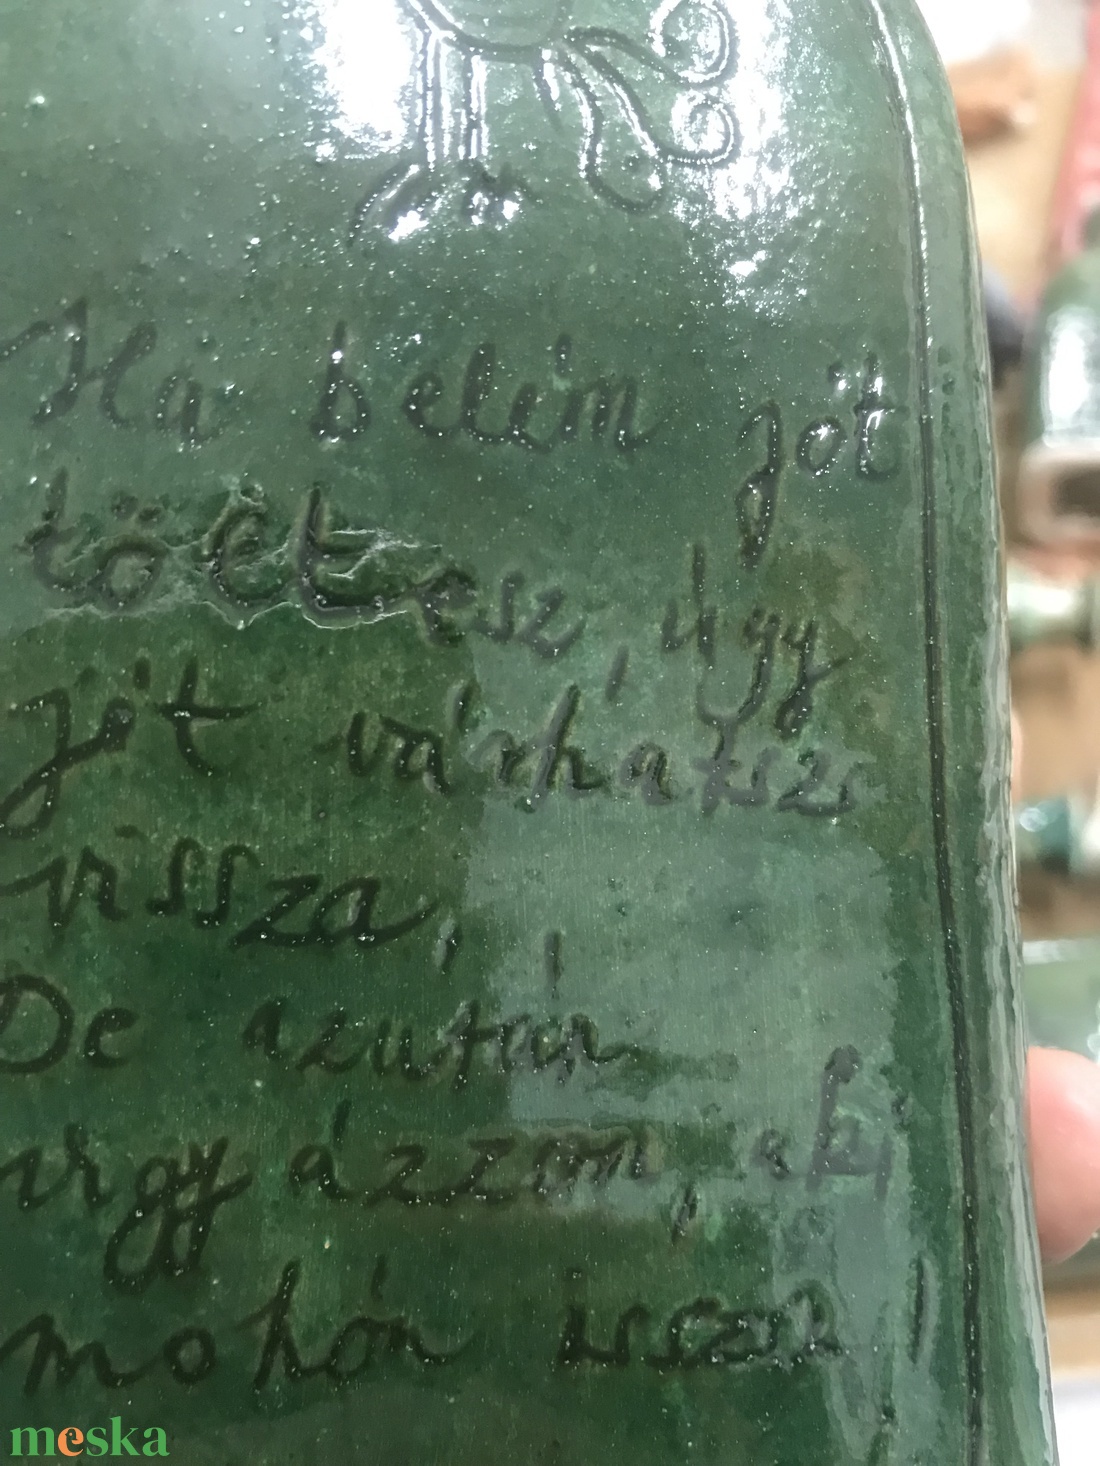 Ha belém jót
töltesz, úgy
jót várhatsz
vissza,
De azután
vigyázzon, aki
mohón iszik!
meska